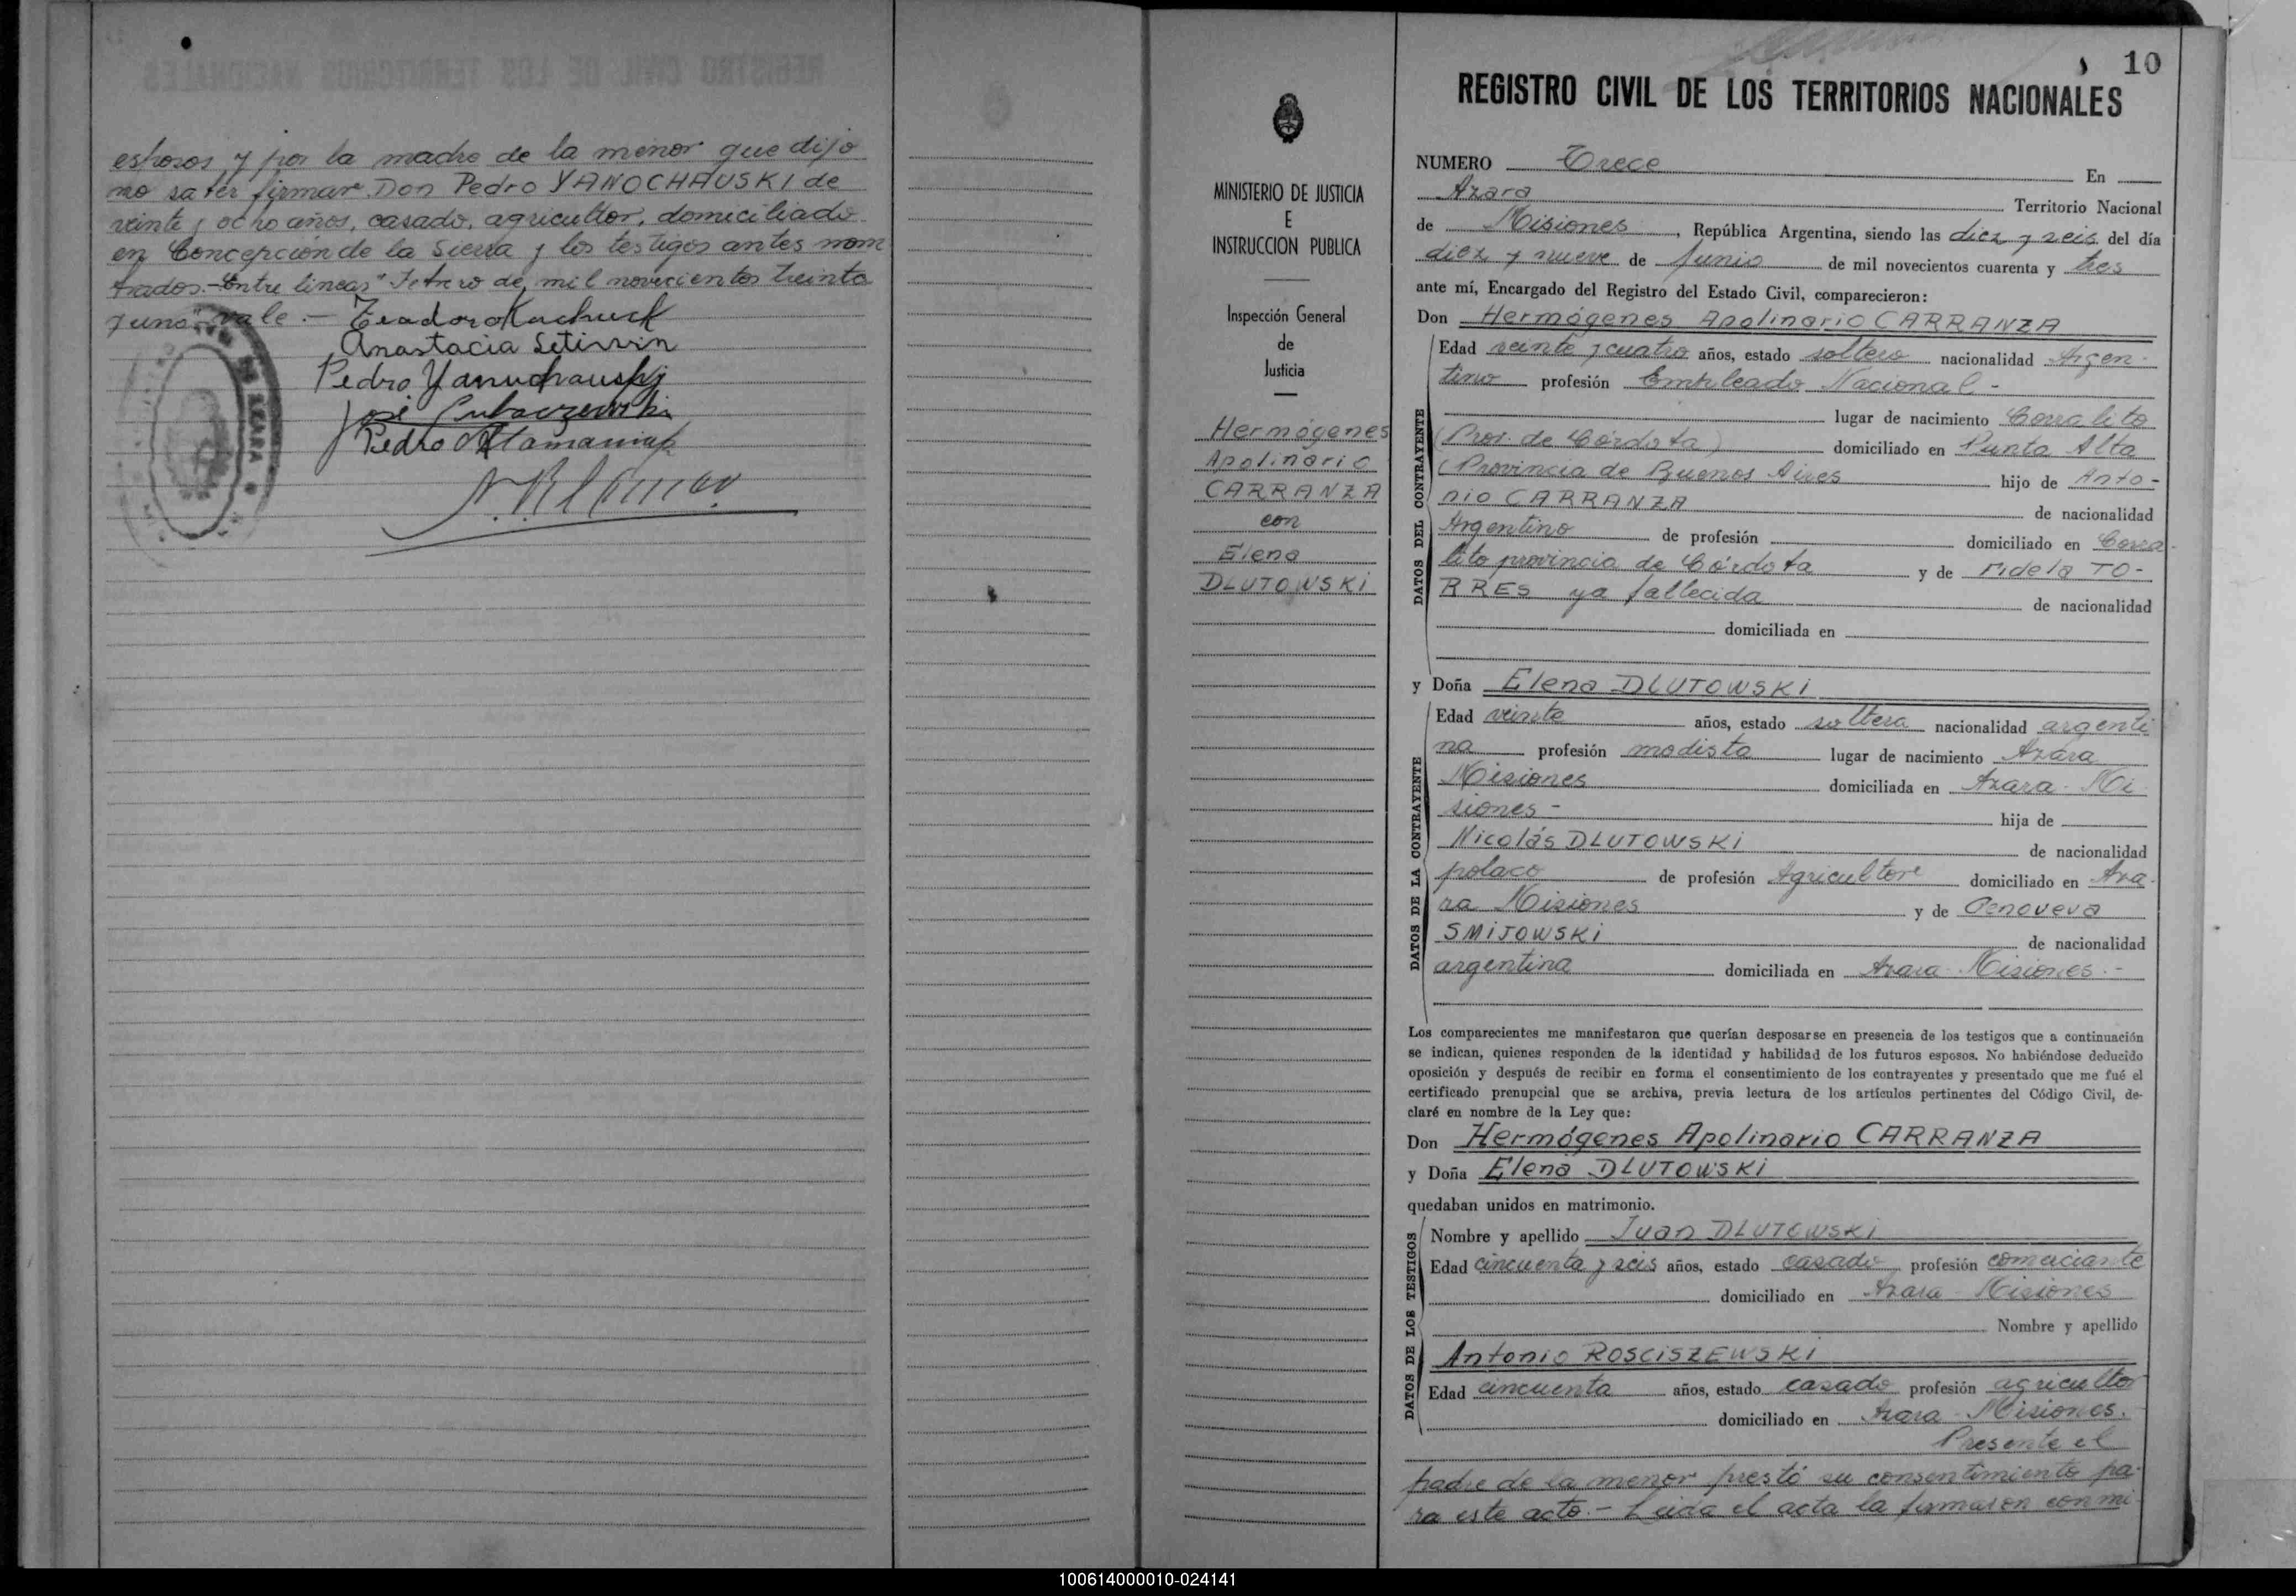 esposos y por la madre de la menor que dijo
no saber firmar Don Pedro YANOCHAUSKI de
veinte y ocho años, casado, agricultor, domiciliado
en Concepción de la Sierra y los testigos antes nom
brados.- Entre lineas "Febrero de mil novecientos treinta
y uno" vale.-
Teodoro Kachuck
Anastacia
Pedro Yanuchauski
José
Pedro
10
REGISTRO CIVIL DE LOS TERRITORIOS NACIONALES
MINISTERIO DE JUSTICIA
E
INSTRUCCION PUBLICA
Inspección General
de
Justicia
Hermógenes
Apolinario
CARRANZA
con
Elena
DLUTOWSKI
NUMERO Trece En
Azara Territorio Nacional
de Misiones, República Argentina, siendo las diez y seis del día
diez y nueve de Junio de mil novecientos cuarenta y tres
ante mí, Encargado del Registro del Estado Civil, comparecieron:
Don Hermógenes Apolinario CARRANZA
DATOS DEL CONTRAYENTE
Edad veinte y cuatro años, estado soltero nacionalidad Argen-
tino profesión Empleado Nacional -
lugar de nacimiento Corralito
(Prov. de Córdoba) domiciliado en Punta Alta
(Provincia de Buenos Aires hijo de Anto-
nio CARRANZA de nacionalidad
Argentino de profesión domiciliado en Corra-
lito provincia de Córdoba y de Fidela TO-
RRES ya fallecida de nacionalidad
domiciliada en
y Doña Elena DLUTOWSKI
DATOS DE LA CONTRAYENTE
Edad veinte años, estado soltera nacionalidad argenti
na profesión modista lugar de nacimiento Azara
Misiones domiciliada en Azara - Mi
siones - hija de
Nicolás DLUTOWSKI de nacionalidad
polaco de profesión Agricultor domiciliado en Aza-
ra Misiones y de Genoveva
SMIJOWSKI de nacionalidad
argentina domiciliada en Azara - Misiones.-
Los comparecientes me manifestaron que querían desposarse en presencia de los testigos que a continuación
se indican, quienes responden de la identidad y habilidad de los futuros esposos. No habiéndose deducido
oposición y después de recibir en forma el consentimiento de los contrayentes y presentado que me fué el
certificado prenupcial que se archiva, previa lectura de los artículos pertinentes del Código Civil, de-
claré en nombre de la Ley que:
Don Hermógenes Apolinario CARRANZA
y Doña Elena DLUTOWSKI
quedaban unidos en matrimonio.
DATOS DE LOS TESTIGOS
Nombre y apellido Juan DLUTOWSKI
Edad cincuenta y seis años, estado casado profesión comerciante
domiciliado en Azara - Misiones
Nombre y apellido
Antonio ROSCISZEWSKI
Edad cincuenta años, estado casado profesión agricultor
domiciliado en Azara - Misiones.
Presente el
padre de la menor prestó su consentimiento pa-
ra este acto.- Leida el acta la firmaron con mi
100614000010-024141